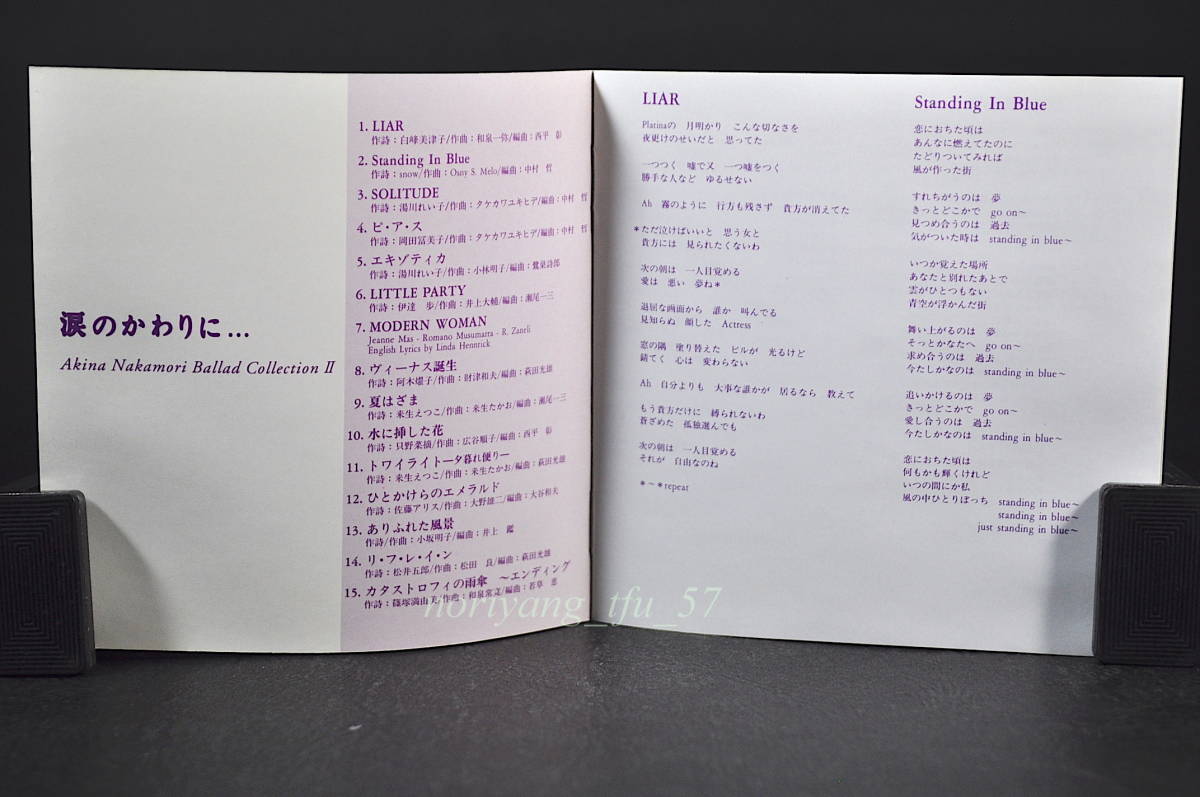 涙のかわりに…
Akina Nakamori Ballad Collection Ⅱ
1. LIAR
作詩：白峰美津子/作曲：和泉一弥/編曲：西平 彰
2. Standing In Blue
作詩：snow/作曲：Osny S. Melo/編曲：中村 哲
3. SOLITUDE
作詩：湯川れい子/作曲：タケカワユキヒデ/編曲：中村 哲
4. ピ・ア・ス
作詩：岡田冨美子/作曲：タケカワユキヒデ/編曲：中村 哲
5. エキゾティカ
作詩：湯川れい子/作曲：小林明子/編曲：鷺巣詩郎
6. LITTLE PARTY
作詩：伊達 歩/作曲：井上大輔/編曲：瀬尾一三
7. MODERN WOMAN
Jeanne Mas - Romano Musumarra - R. Zaneli
English Lyrics by Linda Hennrick
8. ヴィーナス誕生
作詩：阿木燿子/作曲：財津和夫/編曲：萩田光雄
9. 夏はざま
作詩：来生えつこ/作曲：来生たかお/編曲：瀬尾一三
10. 水に挿した花
作詩：只野菜摘/作曲：広谷順子/編曲：西平 彰
11. トワイライト－夕暮れ便り－
作詩：来生えつこ/作曲：来生たかお/編曲：萩田光雄
12. ひとかけらのエメラルド
作詩：佐藤アリス/作曲：大野雄二/編曲：大谷和夫
13. ありふれた風景
作詩/作曲：小坂明子/編曲：井上 鑑
14. リ・フ・レ・イ・ン
作詩：松井五郎/作曲：松田 良/編曲：萩田光雄
15. カタストロフィの雨傘 〜エンディング
作詩：篠塚満由美/作曲：和泉常寛/編曲：若草 恵
LIAR
Platinaの 月明かり こんな切なさを
夜更けのせいだと 思ってた
一つつく 嘘で又 一つ嘘をつく
勝手な人など ゆるせない
Ah 霧のように 行方も残さず 貴方が消えてた
*ただ泣けばいいと 思う女と
貴方には 見られたくないわ
次の朝は 一人目覚める
愛は 悪い 夢ね*
退屈な画面から 誰か 叫んでる
見知らぬ 顔した Actress
窓の隅 塗り替えた ビルが 光るけど
錆てく 心は 変わらない
Ah 自分よりも 大事な誰かが 居るなら 教えて
もう貴方だけに 縛られないわ
蒼ざめた 孤独選んでも
次の朝は 一人目覚める
それが 自由なのね
*〜*repeat
Standing In Blue
恋におちた頃は
あんなに燃えてたのに
たどりついてみれば
風が作った街
すれちがうのは 夢
きっとどこかで go on〜
見つめ合うのは 過去
気がついた時は standing in blue〜
いつか覚えた場所
あなたと別れたあとで
雲がひとつもない
青空が浮かんだ街
舞い上がるのは 夢
そっとかなたへ go on〜
求め合うのは 過去
今たしかなのは standing in blue〜
追いかけるのは 夢
きっとどこかで go on〜
愛し合うのは 過去
今たしかなのは standing in blue〜
恋におちた頃は
何もかも輝くけれど
いつの間にか私
風の中ひとりぼっち standing in blue〜
standing in blue〜
just standing in blue〜
noriyang_tfu_57